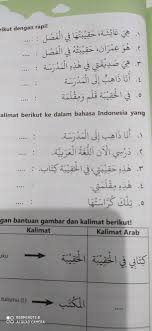 rikut dengan rapi!
١. هِيَ عَائِشَة، حَقِيْبَتُهَا فِي الْفَصْلِ : ....
٢. هُوَ عِمْرَان، حَقِيْبَتُهُ فِي الْفَصْلِ : ....
٣. هِيَ صَدِيْقَتِي فِي هَذِهِ الْمَدْرَسَةِ : ....
٤. أَنَا ذَاهِبٌ إِلَى الْمَدْرَسَةِ : ....
٥. فِي الْحَقِيْبَةِ قَلَمٌ وَمِقْلَمَةٌ : ....
alimat berikut ke dalam bahasa Indonesia yang
١. أَنَا ذَاهِبٌ إِلَى الْمَدْرَسَةِ.
٢. دَرْسِي الْآنَ اللُّغَةُ الْعَرَبِيَّةُ.
٣. هَذِهِ حَقِيْبَتِي، فِي الْحَقِيْبَةِ كِتَابٌ.
٤. هَذِهِ مِقْلَمَتِي.
٥. تِلْكَ كُرَّاسَتُهَا
gan bantuan gambar dan kalimat berikut!
Kalimat Kalimat Arab
uku الْحَقِيْبَة كِتَابِي فِي الْحَقِيْبَةِ
tulismu (l) الْمَكْتَب ....